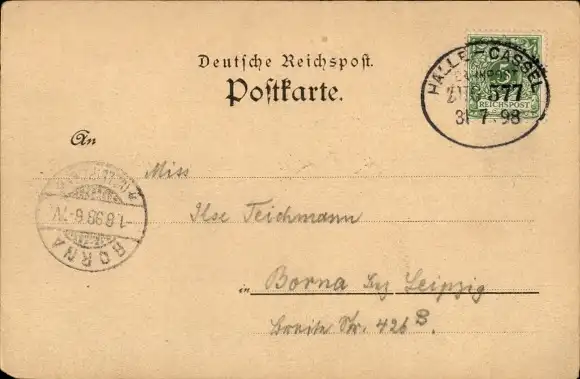 Deutsche Reichspost.
Postkarte.
HALLE-CASSEL
BAHNPOST
ZUG 577
31 7 98
REICHSPOST
An
Miss
Ilse Teichmann
in Borna bez Leipzig
Breite Str. 426 B.
BORNA
1.8.98.6-7V.